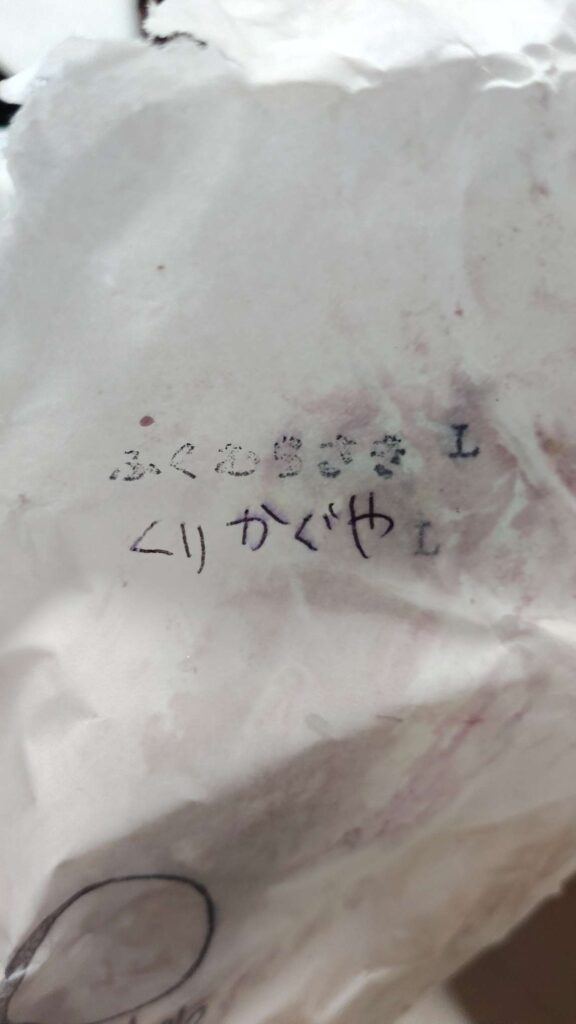 ふくむらさき L
くりかぐや L